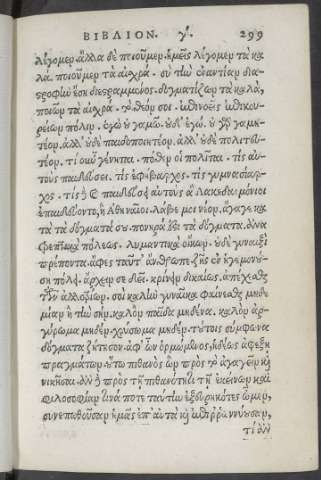 ΒΙΒΛΙΟΝ. γ´. 299
λέγομεν. ἄλλα δὲ ποιοῦμεν. ἡμεῖς λέγομεν τὰ κα
λά. ποιοῦμεν τὰ αἰσχρά. σὺ τὴν ἐναντίαν δια
στροφὴν ἔσῃ διεστραμμένος. δογματίζων τὰ καλά,
ποιῶν τὰ αἰσχρά. τὸν θεόν σοι. ἐπινοεῖς ἐπικου-
ρείων πόλιν. ἐγὼ οὐ γαμῶ. οὐδ' ἐγώ. οὐ γὰρ γαμη-
τέον. ἀλλ' οὐδὲ παιδοποιητέον. ἀλλ' οὐδὲ πολιτευ-
τέον. τί οὖν γένηται. πόθεν οἱ πολῖται. τίς αὐ-
τοὺς παιδεύσει. τίς ἐφήβαρχος. τίς γυμνασίαρ-
χος. τί δὲ καὶ παιδεύσει αὐτοὺς ἃ λακεδαιμόνιοι
ἐπαιδεύοντο, ἢ ἀθηναῖοι. λάβε μοι νέον. ἄγαγε κα
τὰ τὰ δόγματά σου. πονηρά ἐστι τὰ δόγματα. ἀνα
τρεπτικὰ πόλεως. λυμαντικὰ οἴκων. οὐδὲ γυναιξὶ
πρέποντα. ἄφες ταῦτ' ἄνθρωπε. ζῇς ἐν ἡγεμονού-
σῃ πόλει. ἄρχειν σε δεῖ. κρίνειν δικαίως. ἀπέχεσθαι
τῶν ἀλλοτρίων. σοὶ καλὴν γυναῖκα φαίνεσθαι μηδε
μίαν ἢ τὴν σήν. καλὸν παῖδα μηδένα. καλὸν ἀρ-
γύρωμα μηδέν. χρύσωμα μηδέν. τούτοις σύμφωνα
δόγματα ζήτησον. ἀφ' ὧν ὁρμώμενος, ἡδέως ἀφέξῃ
πραγμάτων. οὕτω πιθανῶν πρὸς τὸ ἀγαγεῖν καὶ
νικῆσαι. ἂν δὲ πρὸς τῇ πιθανότητι τῇ ἐκείνων καὶ
φιλοσοφίαν τινά ποτε ταύτην ἐξευρηκότες ὦμεν,
συνεπωθοῦσαν ἡμᾶς ἐπ' αὐτὰ καὶ ἐπιρρωννύουσαν,
τί ἂν